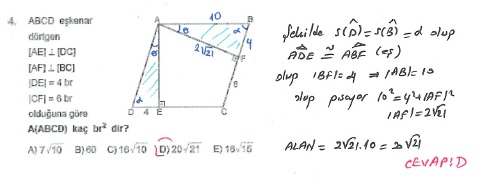 4. ABCD eşkenar
dörtgen
[AE] ⊥ [DC]
[AF] ⊥ [BC]
|DE| = 4 br
|CF| = 6 br
olduğuna göre
A(ABCD) kaç br² dir?
A) 7√10 B) 60 C) 16√10 D) 20√21 E) 18√15
A 10 B
θ α
4
2√21 F
θ
6
α
D 4 E C
Şekilde s(D̂) = s(B̂) = α olup
ADE ≅ ABF (eş)
olup |BF| = 4 ⇒ |AB| = 10
olup pisagor 10² = 4² + |AF|²
|AF| = 2√21
ALAN = 2√21.10 = 20√21
CEVAP: D